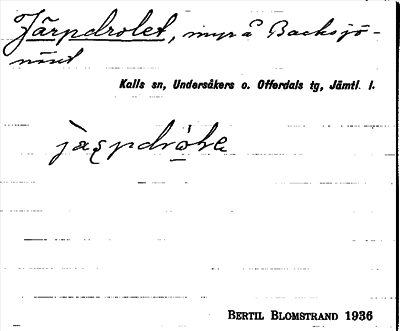 Järpdrolet, myr å Backsjö-
näset
Kalls sn, Undersåkers o. Offerdals tg, Jämtl. l.
BERTIL BLOMSTRAND 1936